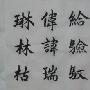 給驗
偉諱瑞
琳林枯